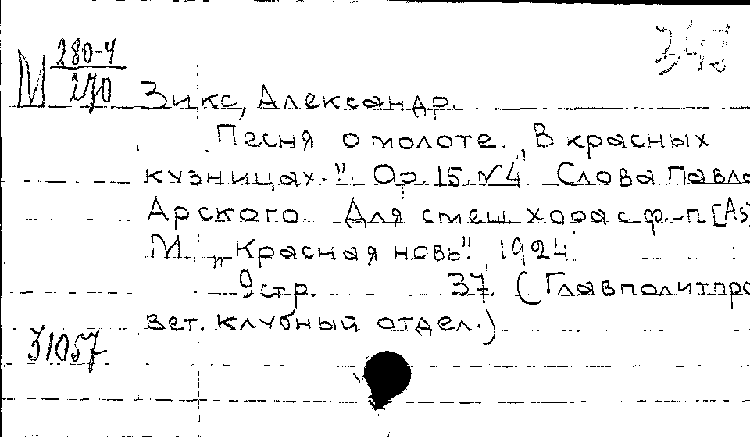 М 280-4
270
343
Зикс, Александр.
Песня о молоте. „В красных
кузницах." Op. 15. №4 Слова Павла
Арского Для смеш хора с ф.-п [As]
М. „Красная новь" 1924
9 стр. 37. (Главполитпро
вет. клубный отдел.)
31057